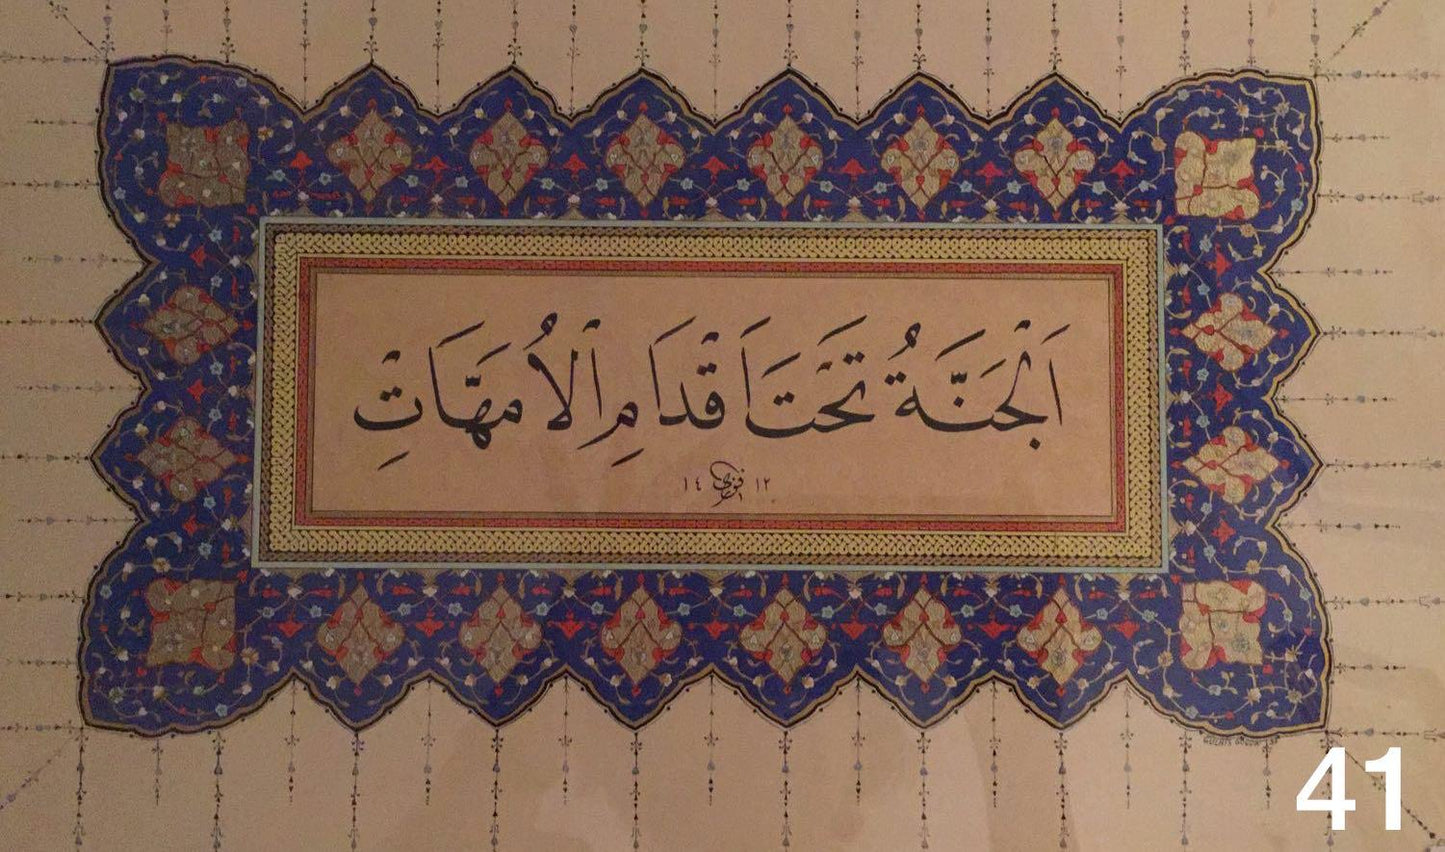 اَلْجَنَّةُ تَحْتَ اَقْدَامِ الْاُمَّهَاتِ
١٤ فوزى ١٢
41